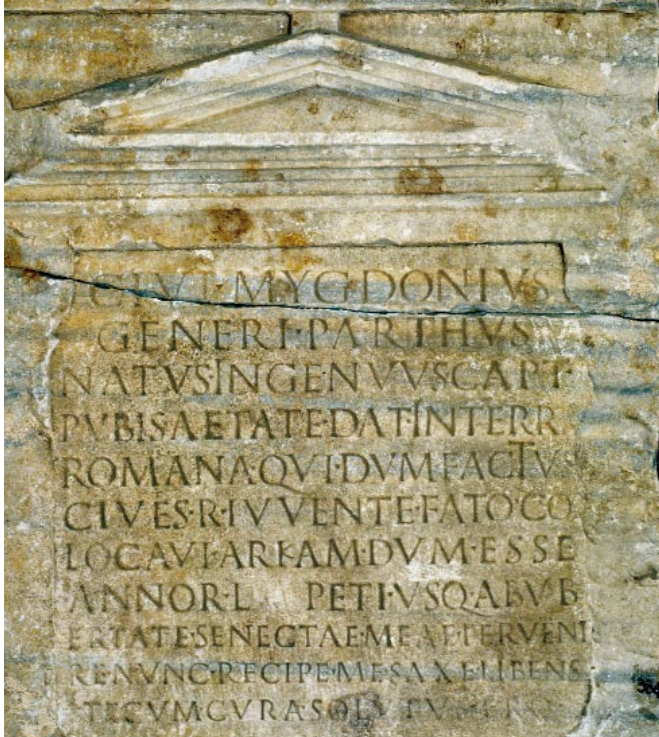 C IVL MYGDONIVS
GENERI·PARTHVS
NATVS INGENVVS CAPT·
PVBIS AETATE·DAT INTERR
ROMANA QVI·DVM FACTVS
CIVES·R·IVVENTE·FATO·CO
LOCAVI·ARKAM·DVM·ESSE
ANNOR·L PETI·VSQ A BVB
ERTATE·SENECTAE·MEAE·PERVENI
RE·NVNC·RECIPE·ME SAXE LIBENS
TECVM CVRA SOLVTVS ERO